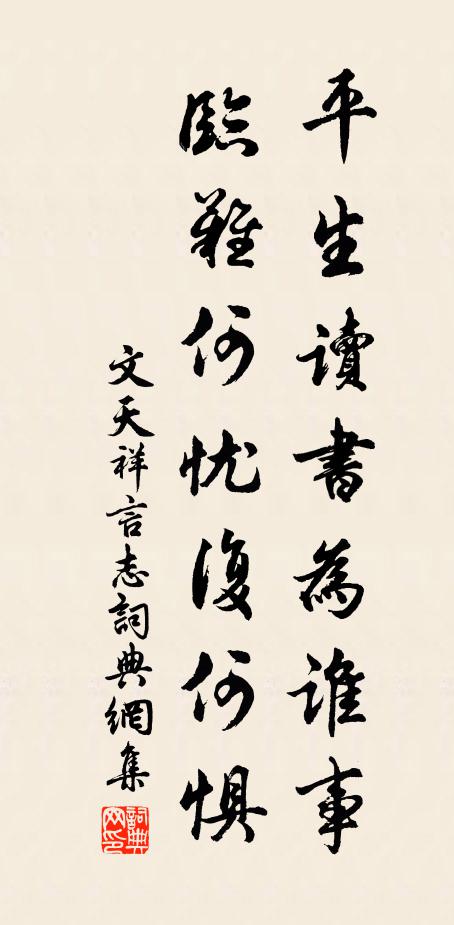 平生讀書為誰事
臨難何忧復何惧
文天祥言志詞典網集
詞典网印